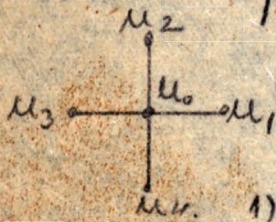 u2
u3 u0 u1
u4.